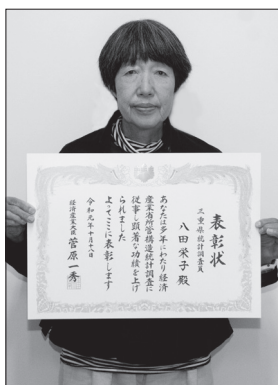 表彰状
三重県統計調査員
八田栄子殿
あなたは多年にわたり経済
産業省所管構造統計調査に
従事し顕著な功績を上げ
られました
よってここに表彰します
令和元年十月十八日
経済産業大臣 菅原一秀